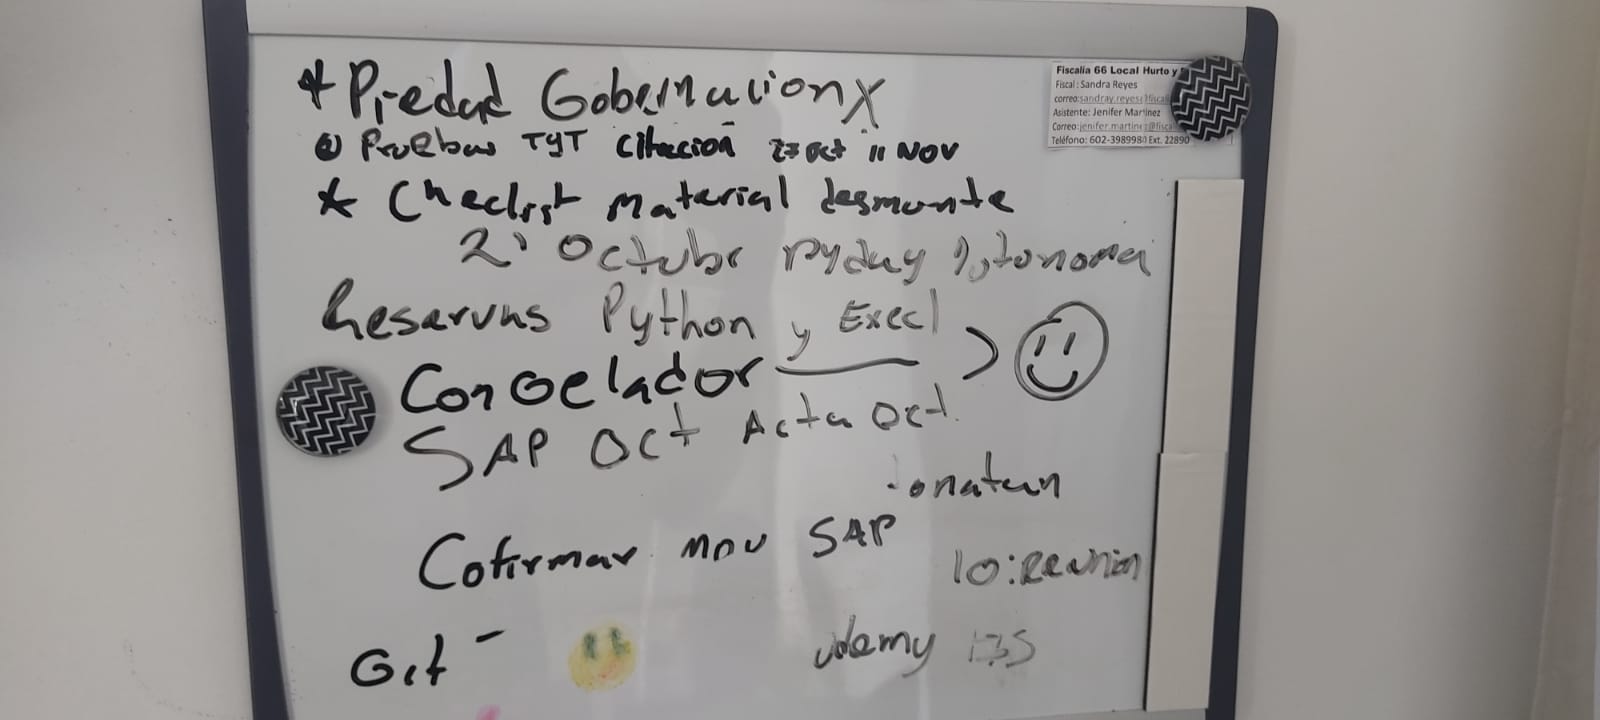 * Piedad Gobernacion X
Pruebas TyT citación 27 oct 11 NOV
* Checlist material desmonte
2' Octubr pyday Autonoma
Reservas Python y Execl
Congelador
SAP Oct Acta Oct.
Jonatan
Cofirmar mov SAP
10:Reunion
Git -
udemy 135
Fiscalía 66 Local Hurto y
Fiscal: Sandra Reyes
correo:sandray.reyes@fiscal
Asistente: Jenifer Martinez
Correo:jenifer.martinez@fisca
Teléfono: 602-3989980 Ext. 22890